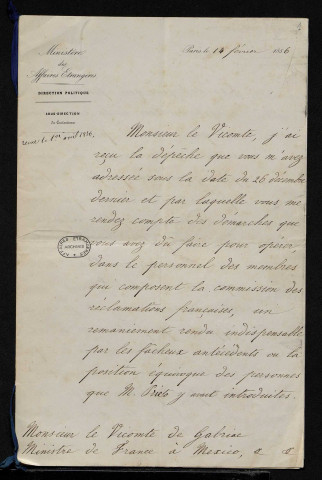 Ministère
des
Affaires Etrangères
DIRECTION POLITIQUE
SOUS-DIRECTION
Paris le 14 février 1856
Monsieur le Vicomte, j'ai
reçu la dépêche que vous m'avez
adressée sous la date du 26 décembre
dernier et par laquelle vous me
rendez compte des démarches que
vous avez dû faire pour opérer
dans le personnel des membres
qui composent la commission des
réclamations françaises, un
remaniement rendu indispensable
par les fâcheux antécédents ou la
position équivoque des personnes
que M. Prieto y avait introduites.
Monsieur le Vicomte de Gabriac
Ministre de France à Mexico, &. &.